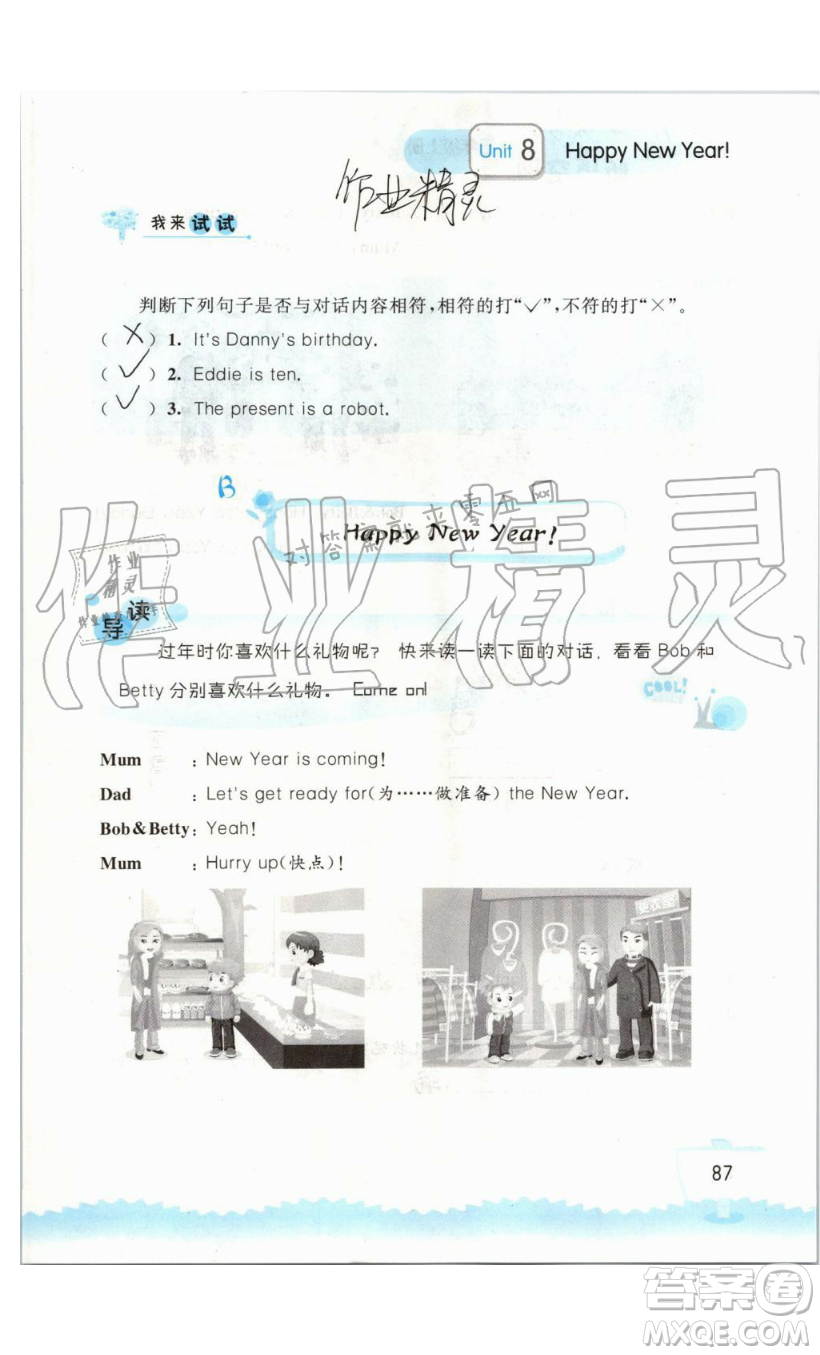 Unit 8 Happy New Year!
作业精灵
我来试试
判断下列句子是否与对话内容相符,相符的打“✓”,不符的打“×”。
( × ) 1. It's Danny's birthday.
( ✓ ) 2. Eddie is ten.
( ✓ ) 3. The present is a robot.
B
对答案就来零五网
Happy New Year!
作业精灵
作业
精灵
导读
过年时你喜欢什么礼物呢? 快来读一读下面的对话,看看 Bob 和
Betty 分别喜欢什么礼物。 Come on!
COOL!
Mum : New Year is coming!
Dad : Let's get ready for(为……做准备) the New Year.
Bob&Betty: Yeah!
Mum : Hurry up(快点)!
87
答案卷
MXQE.COM